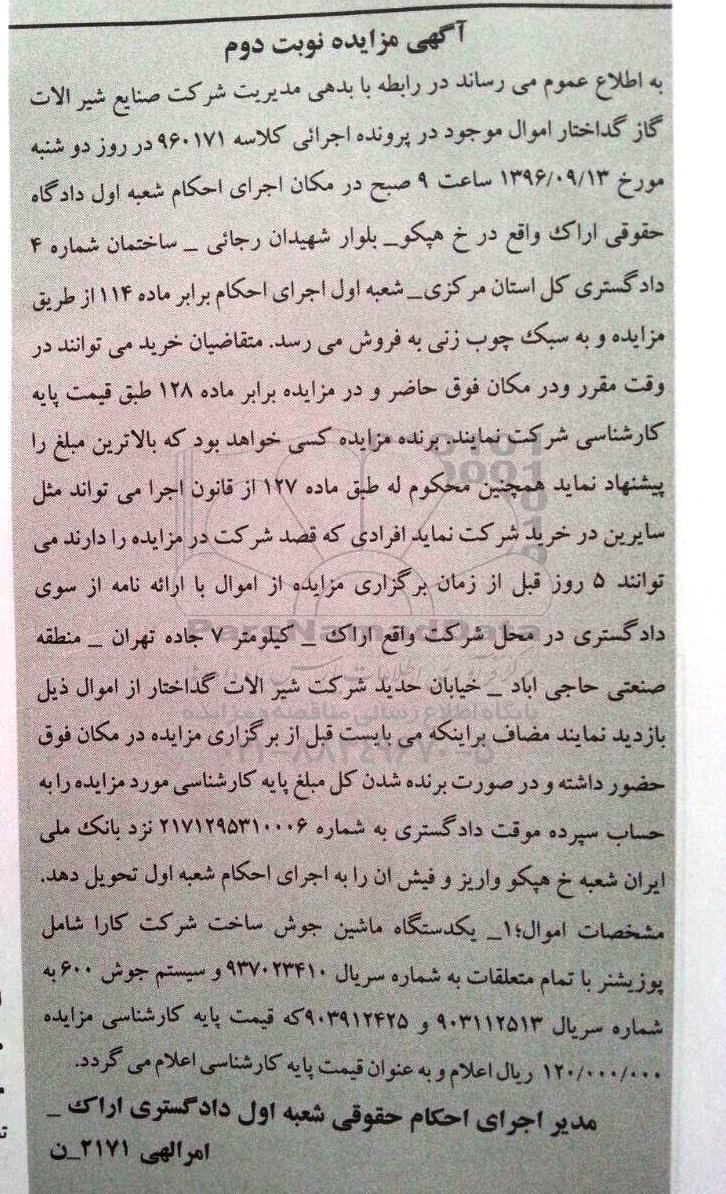 آگهی مزایده نوبت دوم
به اطلاع عموم می رساند در رابطه با بدهی مدیریت شرکت صنایع شیر الات
گاز گداختار اموال موجود در پرونده اجرائی کلاسه ۹۶۰۱۷۱ در روز دو شنبه
مورخ ۱۳۹۶/۰۹/۱۳ ساعت ۹ صبح در مکان اجرای احکام شعبه اول دادگاه
حقوقی اراک واقع در خ هپکو_ بلوار شهیدان رجائی _ ساختمان شماره ۴
دادگستری کل استان مرکزی_ شعبه اول اجرای احکام برابر ماده ۱۱۴ از طریق
مزایده و به سبک چوب زنی به فروش می رسد. متقاضیان خرید می توانند در
وقت مقرر ودر مکان فوق حاضر و در مزایده برابر ماده ۱۲۸ طبق قیمت پایه
کارشناسی شرکت نمایند. برنده مزایده کسی خواهد بود که بالاترین مبلغ را
پیشنهاد نماید همچنین محکوم له طبق ماده ۱۲۷ از قانون اجرا می تواند مثل
سایرین در خرید شرکت نماید افرادی که قصد شرکت در مزایده را دارند می
توانند ۵ روز قبل از زمان برگزاری مزایده از اموال با ارائه نامه از سوی
دادگستری در محل شرکت واقع اراک _ کیلومتر ۷ جاده تهران _ منطقه
صنعتی حاجی اباد _ خیابان حدید شرکت شیر الات گداختار از اموال ذیل
بازدید نمایند مضاف براینکه می بایست قبل از برگزاری مزایده در مکان فوق
حضور داشته و در صورت برنده شدن کل مبلغ پایه کارشناسی مورد مزایده را به
حساب سپرده موقت دادگستری به شماره ۲۱۷۱۲۹۵۳۱۰۰۰۶ نزد بانک ملی
ایران شعبه خ هپکو واریز و فیش ان را به اجرای احکام شعبه اول تحویل دهد.
مشخصات اموال؛۱_ یکدستگاه ماشین جوش ساخت شرکت کارا شامل
پوزیشنر با تمام متعلقات به شماره سریال ۹۳۷۰۲۳۴۱۰ و سیستم جوش ۶۰۰ به
شماره سریال ۹۰۳۱۱۲۵۱۳ و ۹۰۳۹۱۲۴۲۵که قیمت پایه کارشناسی مزایده
۱۲۰/۰۰۰/۰۰۰ ریال اعلام و به عنوان قیمت پایه کارشناسی اعلام می گردد.
مدیر اجرای احکام حقوقی شعبه اول دادگستری اراک _
امرالهی ۲۱۷۱_ن
ParsNamadData
پایگاه اطلاع رسانی مناقصه و مزایده
۰۲۱-۸۸۳۴۹۶۷۰-۵